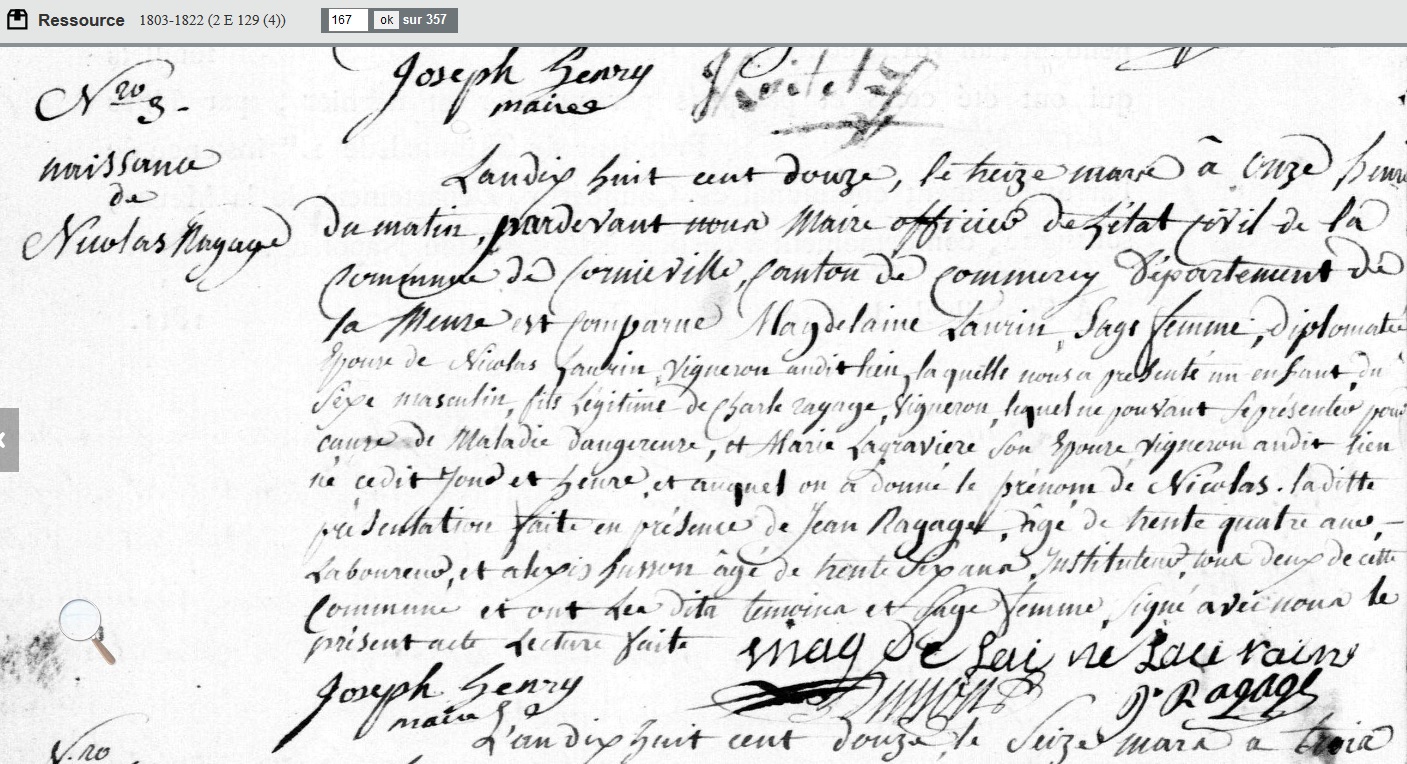 Ressource 1803-1822 (2 E 129 (4)) 167 ok sur 357
Joseph henry
maire
Nro 3.
naissance
de
Nicolas Ragage
L'an dix huit cent douze, le treize mars à onze heures
du matin, pardevant nous Maire officier de l'état civil de la
Commune de Cornieville, Canton de Commercy Département de
la Meuse est comparue Magdelaine Laurin, Sage femme, diplomatée
Epouse de Nicolas Laurin, vigneron audit lieu, laquelle nous a présenté un enfant du
Sexe masculin, fils légitime de Charle ragage, vigneron, lequel ne pouvant se présenter pour
cause de Maladie dangereuse, et Marie Lagraviere son Epouse vigneron audit lieu
né cedit Jour et heure, et auquel on a donné le prénom de Nicolas. laditte
présentation faite en présence de Jean Ragage, âgé de trente quatre ans
Laboureur, et alexis husson âgé de trente Six ans, Instituteur, tous deux de cette
Commune et ont Les dits temoins et Sage femme, Signé avec nous le
présent acte Lecture faite
mag de Lai ne Lau rain
Joseph henry
maire
husson
Jn Ragage
L'an dix huit cent douze, le Seize mars a trois
N.ro